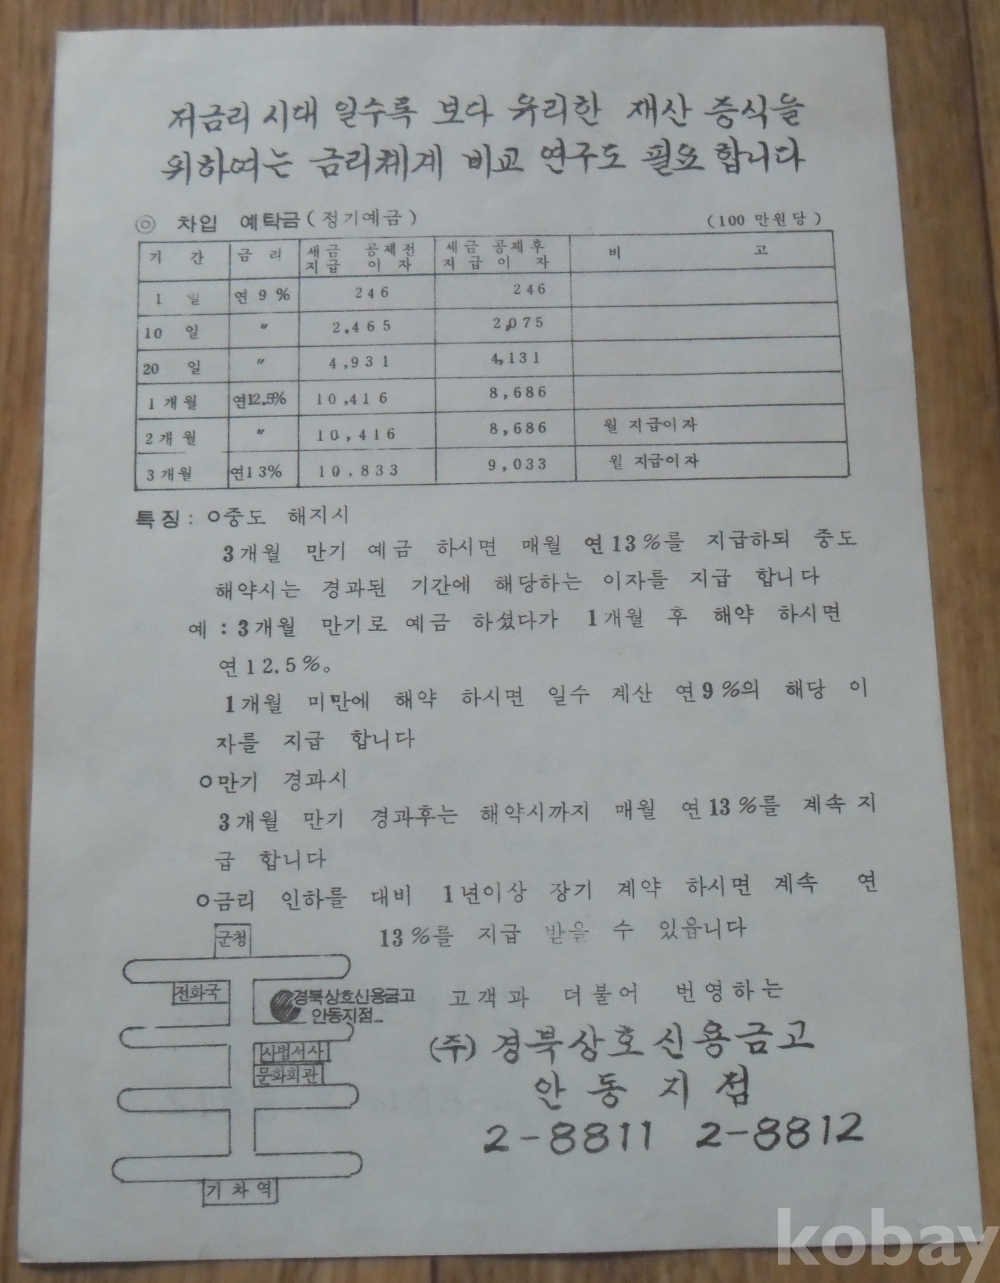 저금리 시대 일수록 보다 유리한 재산 증식을
위하여는 금리체계 비교 연구도 필요 합니다
◎ 차입 예탁금(정기예금) (100 만원당)
기 간 금 리 세금 공제전 지급 이자 세금 공제후 지급 이 자 비 고
1 일 연 9 % 246 246
10 일 〃 2,465 2,075
20 일 〃 4,931 4,131
1 개월 연12.5% 10,416 8,686
2 개월 〃 10,416 8,686 월 지급이자
3 개월 연13% 10,833 9,033 월 지급이자
특징: ㅇ중도 해지시
3개월 만기 예금 하시면 매월 연13%를 지급하되 중도
해약시는 경과된 기간에 해당하는 이자를 지급 합니다
예 : 3개월 만기로 예금 하셨다가 1개월 후 해약 하시면
연12.5%。
1개월 미만에 해약 하시면 일수 계산 연9%의 해당 이
자를 지급 합니다
ㅇ만기 경과시
3개월 만기 경과후는 해약시까지 매월 연13%를 계속 지
급 합니다
ㅇ금리 인하를 대비 1년이상 장기 계약 하시면 계속 연
13%를 지급 받을 수 있읍니다
군청
전화국
경북상호신용금고
안동지점
사법서사
문화회관
기 차 역
고객과 더불어 번영하는
(주) 경북상호신용금고
안 동 지 점
2-8811 2-8812
kobay